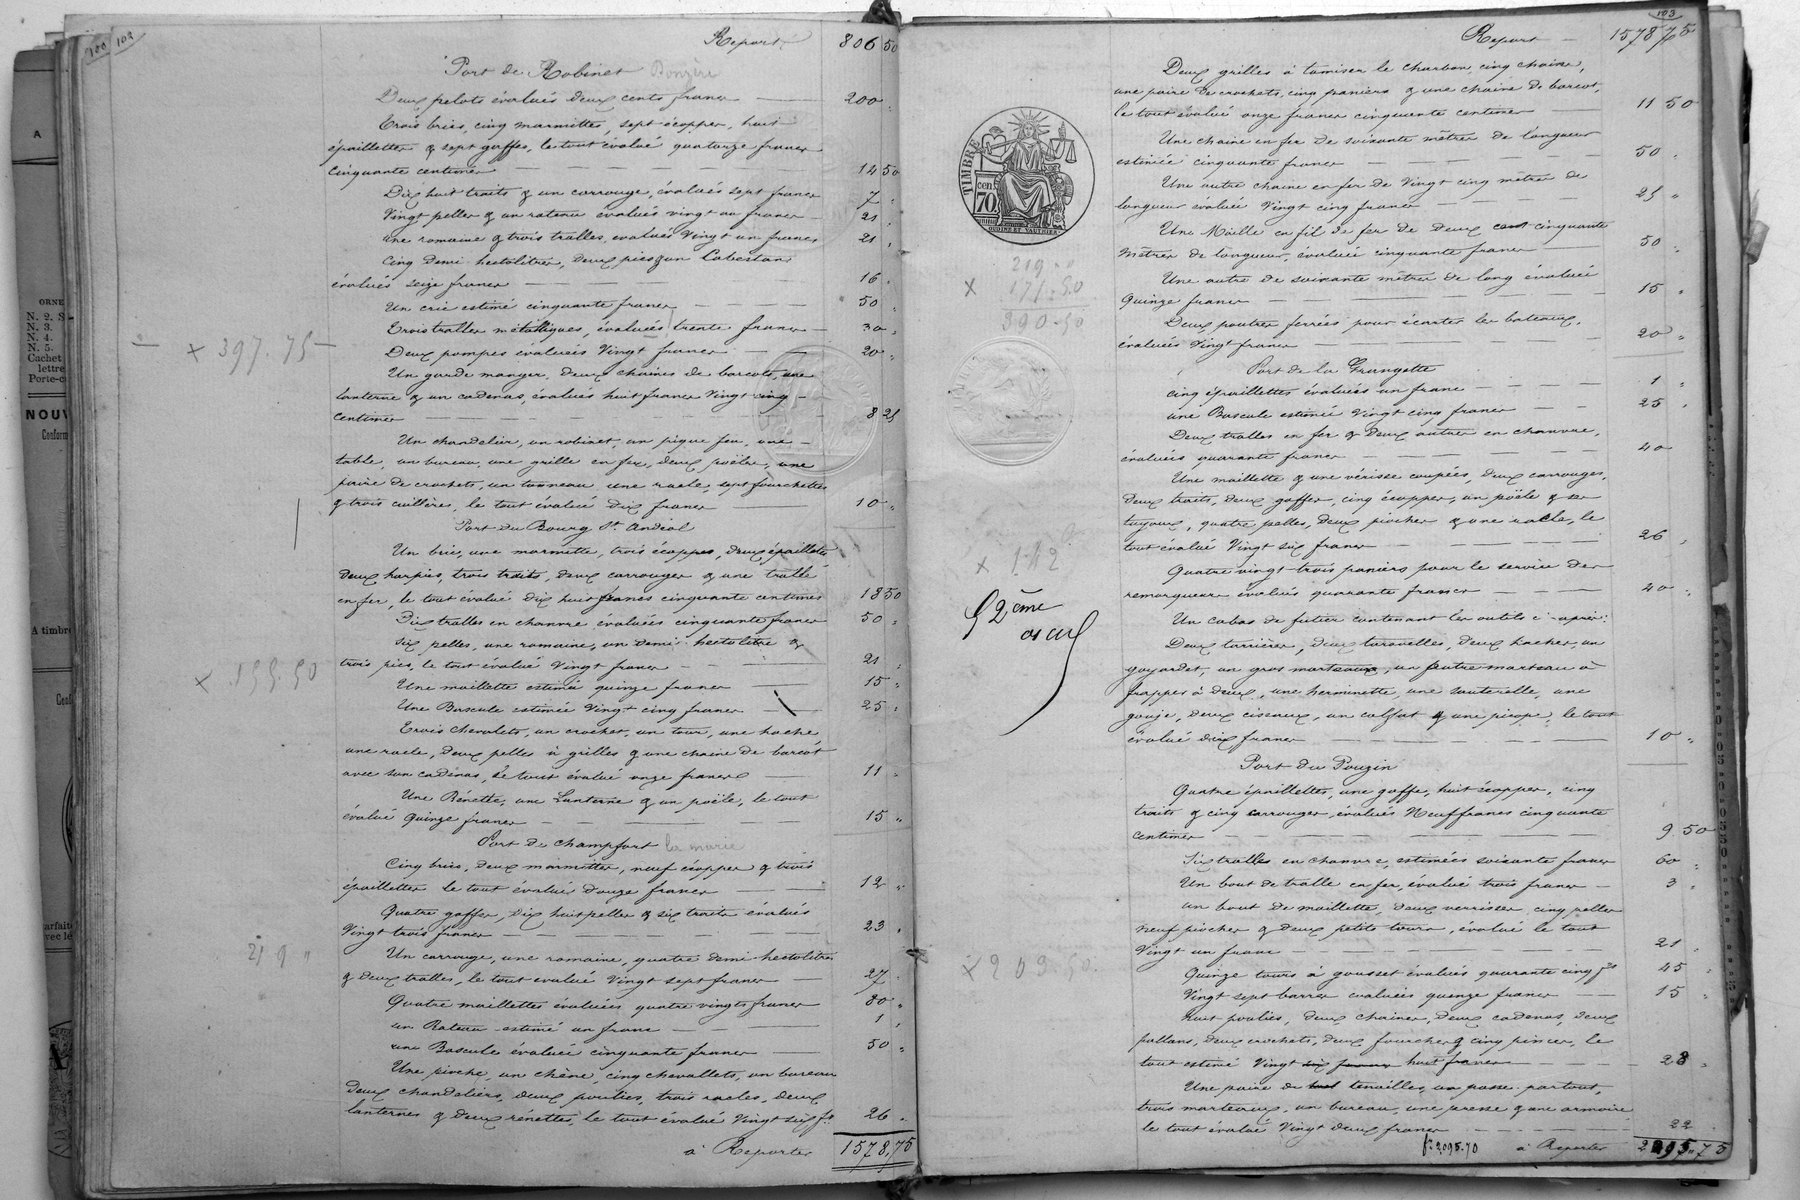 100 102
Report 806 50
Port de Robinet Donzère
Deux pelots évalués deux cents francs 200 "
Trois bries, cinq marmittes, sept écopper, huit
épaillettes & sept gaffes, le tout évalué quatorze francs
Cinquante centimes 14 50
Dix huit traits & un carrouge, évalués sept francs 7 "
Vingt pelles & un rateau évalués vingt un francs 21 "
une romaine & trois tralles, évalués Vingt un francs 21 "
Cinq demi-hectolitres, deux pics & un Cabestan
évalués seize francs 16 "
Un cric estimé cinquante francs 50 "
Trois tralles métalliques, évaluées trente francs 30 "
– × 397.75 –
Deux pompes évaluées Vingt francs 20 "
Un garde manger, deux chaines de barcots, une
lanterne & un cadenas, évalués huit francs Vingt cinq
Centimes 8 25
Un chandelier, un robinet, un pique feu, une
table, un bureau, une grille en fer, deux poëles, une
paire de crochets, un tonneau une racle, sept fourchettes
& trois cuillères, le tout évalué dix francs 10 "
Port du Bourg St. Andéol
Un bric, une marmitte, trois écoppes, deux épaillettes
deux harpies, trois traits, deux carrouges & une tralle
en fer, le tout évalué Dix huit francs cinquante centimes 18 50
Dix tralles en chanvre évaluées cinquante francs 50 "
Six pelles, une romaine, un demi-hectolitre &
trois pics, le tout évalué Vingt francs 21 "
× 155.50
Une maillette estimée quinze francs 15 "
Une Bascule estimée Vingt cinq francs 25 "
Trois chevalets, un crochet, un tour, une hache,
une racle, deux pelles à grilles & une chaine de barcot
avec son cadenas, le tout évalué onze francs 11 "
Une Rénette, une Lanterne & un poële, le tout
évalué Quinze francs 15 "
Port de Champfort la marie
Cinq bries, deux marmittes, neuf écopper & trois
épaillettes le tout évalué douze francs 12 "
Quatre gaffes, dix huit pelles & six traits évalués
Vingt trois francs 23 "
219 "
Un carrouge, une romaine, quatre demi-hectolitres
& deux tralles, le tout évalué Vingt sept francs 27 "
Quatre maillettes évaluées quatre vingts francs 80 "
un Rateau estimé un franc 1 "
une Bascule évaluée cinquante francs 50 "
Une pioche, un chêne, cinq chevallets, un bureau
Deux chandeliers, deux poulies, trois racles, deux
lanternes & deux rénettes, le tout évalué Vingt six fs 26 "
à Reporter 1578,75
103
Report 1578 75
Deux grilles à tamiser le charbon, cinq chaines,
une paire de crochets, cinq paniers & une chaine de barcot,
le tout évalué onze francs cinquante centimes 11 50
Une chaine en fer de soixante mètres de longueur
estimée cinquante francs 50 "
Une autre chaine en fer de Vingt cinq mètres de
longueur évaluée Vingt cinq francs 25 "
Une Maille en fil de fer de Deux cent cinquante
mètres de longueur, évaluée cinquante francs 50 "
Une autre de soixante mètres de long évaluée
Quinze francs 15 "
Deux poutres ferrées pour écarter les bateaux,
évaluées Vingt francs 20 "
TIMBRE
cen 70
OUDINÉ ET VAUTHIER
219 "
× 171.50
390.50
Port de la Grangette
cinq épaillettes évaluées un franc 1 "
une Bascule estimée Vingt cinq francs 25 "
Deux tralles en fer & Deux autres en chanvre,
évaluées quarante francs 40 "
Une maillette & une vérisse coupées, deux carrouges,
deux traits, deux gaffes, cinq écopper, un poële & ses
tuyaux, quatre pelles, deux pioches & une racle, le
tout évalué Vingt six francs 26 "
Quatre vingt trois paniers pour le service des
remorqueurs évalués quarante francs 40 "
× 142
52ème
Un cabas de fûtier contenant les outils ci-après:
Deux tarrières, deux taravelles, deux haches, un
goyardet, un gros marteau, un autre marteau à
frapper à deux, une herminette, une sauterelle, une
gouje, deux ciseaux, un calfat & une pioche, le tout
évalué dix francs 10 "
Port du Pouzin
Quatre épaillettes, une gaffe, huit écopper, cinq
traits & cinq carrouges, évalués Neuf francs cinquante
centimes 9 50
Six tralles en chanvre, estimées soixante francs 60 "
Un bout de tralle en fer, évalué trois francs 3 "
un bout de maillette, deux verrisses, cinq pelles
neuf pioches & deux petits tours, évalué le tout
Vingt un francs 21 "
× 203.50
Quinze tours à gousset évalués quarante cinq fs 45 "
Vingt sept barres évaluées quinze francs 15 "
huit poulies, deux chaines, deux cadenas, deux
pallans, deux crochets, deux fourches & cinq pinces, le
tout estimé Vingt six francs huit francs 28 "
Une paire de tenailles, un passe-partout,
trois marteaux, un bureau, une presse & une armoire
le tout évalué Vingt deux francs 22
f. 2095.70 à Reporter 2095.75
A
N. 2.
N. 3.
N. 4.
N. 5.
Cachet
lettre
NOUV
Conform
A timbre